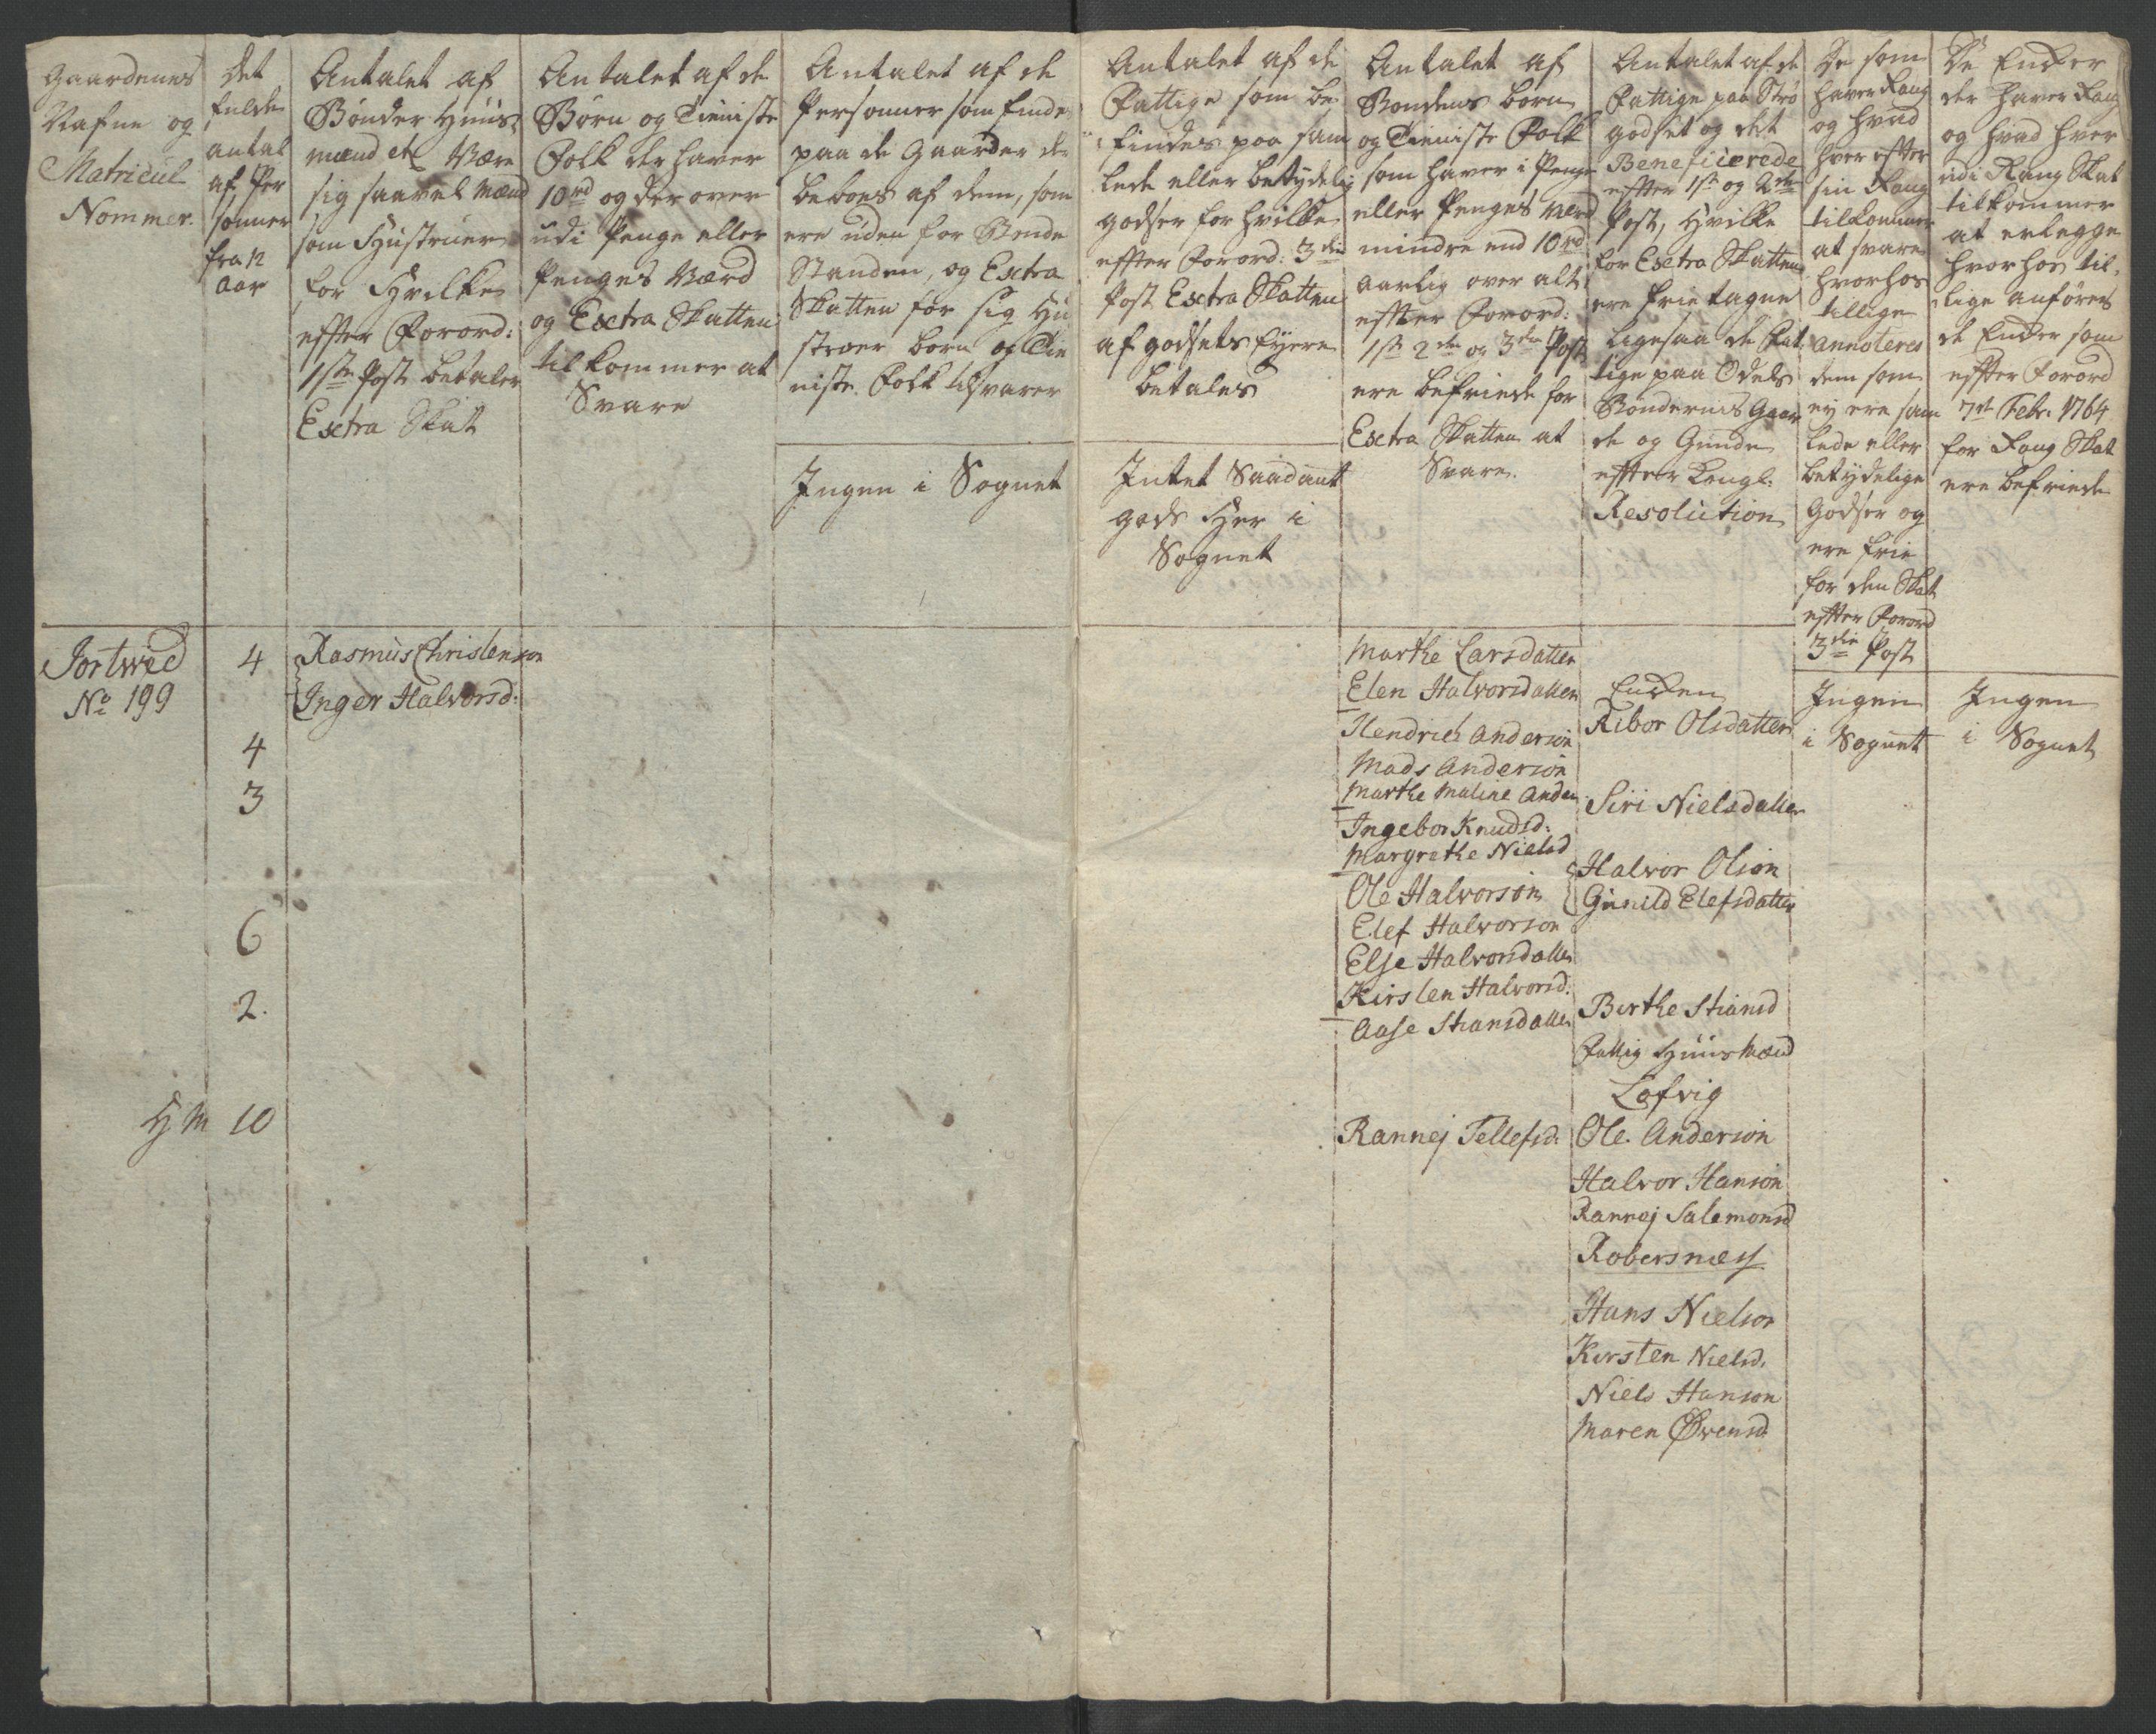 Gaardenes
Nafne og
Matricul
Nommer.
Det
fulde
antal
af Per
sonner
fra 12
Aar
Antalet af
Bønder Huus
mænd etc Være
sig saavel Mænd
som Hustruer
for Hvilke
effter Forord:
1ste Post betaler
Extra Skat
Antalet af de
Børn og Tieniste
Folk der haver
10rd og der over
udi Penge eller
Penges Værd
og Extra Skatten
tilkommer at
Svare
Antalet af de
Personner som finde
paa de Gaarder de
beboes af dem, som
ere uden for Bonde
Standen, og Extra
Skatten for sig Hu
struer born og Tie
niste Folk tilsvarer
Ingen i Sognet
Antalet af de
Fattige som be
findes paa sam
lede eller betydelig
godser for hvilke
effter Forord: 3die
Post Extra Skatten
af godsets Eyere
betales
Intet Saadant
gods Her i
Sognet
Antalet af
Bondens born
og Tieniste Folk
som haver i Penge
eller Penges Værd
mindre end 10rd
Aarlig over alt
effter Forord:
1ste 2den og 3die Post
ere befriede for
Extra Skatten at
Svare.
Antalet af de
Fattige paa Strø
godset og det
Beneficerede
effter 1ste og 2den
Post, Hvilke
for Extra Skatten
ere frie tagne
Ligesaa de Fat
tige paa Odels
Bøndernis Gaar
de og Grunde
effter Kongl:
Resolution
De som
haver Rang
og hvad
hver effter
sin Rang
tilkommer
at svare
hvorhos
tillige
annoteres
dem som
ey ere sam
lede eller
betydelige
Godser og
ere frie
for den Skat
effter Forord
3die Post
De Encker
der haver Rang
og hvad hver
udi Rang Skat
tilkommer
at erlegge
hvorhos til
lige anføres
de Encker som
effter Forord
7de Febr. 1764
for Rang Skat
ere befriede
Jortwed
No 199
4
Rasmus Christenson
Inger Halvorsd:
4
3
6
2.
H M 10
Marthe Larsdatter
Elen Halvorsdatter
Hendrich Anderson
Mads Anderson
Marthe Maline Anders
Ingebor Knudsd:
Margrethe Nielsd
Ole Halvorson
Elef Halvorson
Else Halvorsdatter
Kirsten Halvorsd:
Aase Stiansdatter
Rannej Tellefsd:
Encken
Ribor Olsdatter
Siri Nielsdatter
Halvor Olson
Gunild Elefsdatter
Berthe Stiansd
Fattig Huusmænd
Lofvig
Ole Anderson
Halvor Hanson
Rannej Salemonsd
Robersness
Hans Nielson
Kirsten Nielsd.
Niels Hanson
Maren Øvensd
Ingen
i Sognett
Ingen
i Sognet